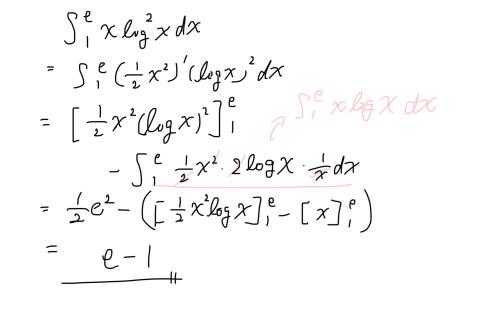 ∫₁ᵉ x log²x dx
= ∫₁ᵉ (1/2 x²)' (log x)² dx
= [1/2 x² (log x)²]₁ᵉ
∫₁ᵉ x log x dx
- ∫₁ᵉ 1/2 x² · 2 log X · 1/x dx
= 1/2 e² - ([1/2 x² log x]₁ᵉ - [x]₁ᵉ)
= e - 1